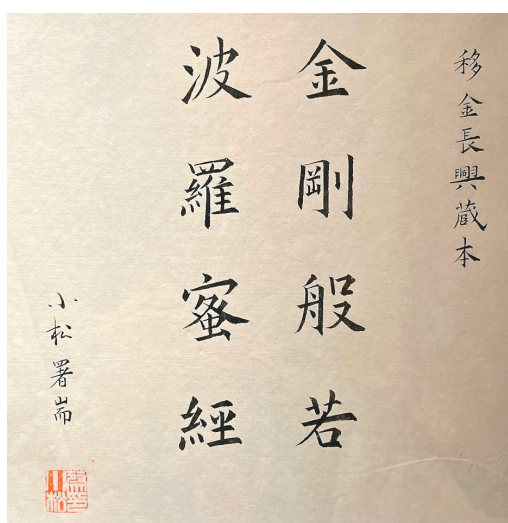 移金長興蔵本
金剛般若
波羅蜜經
小松署耑